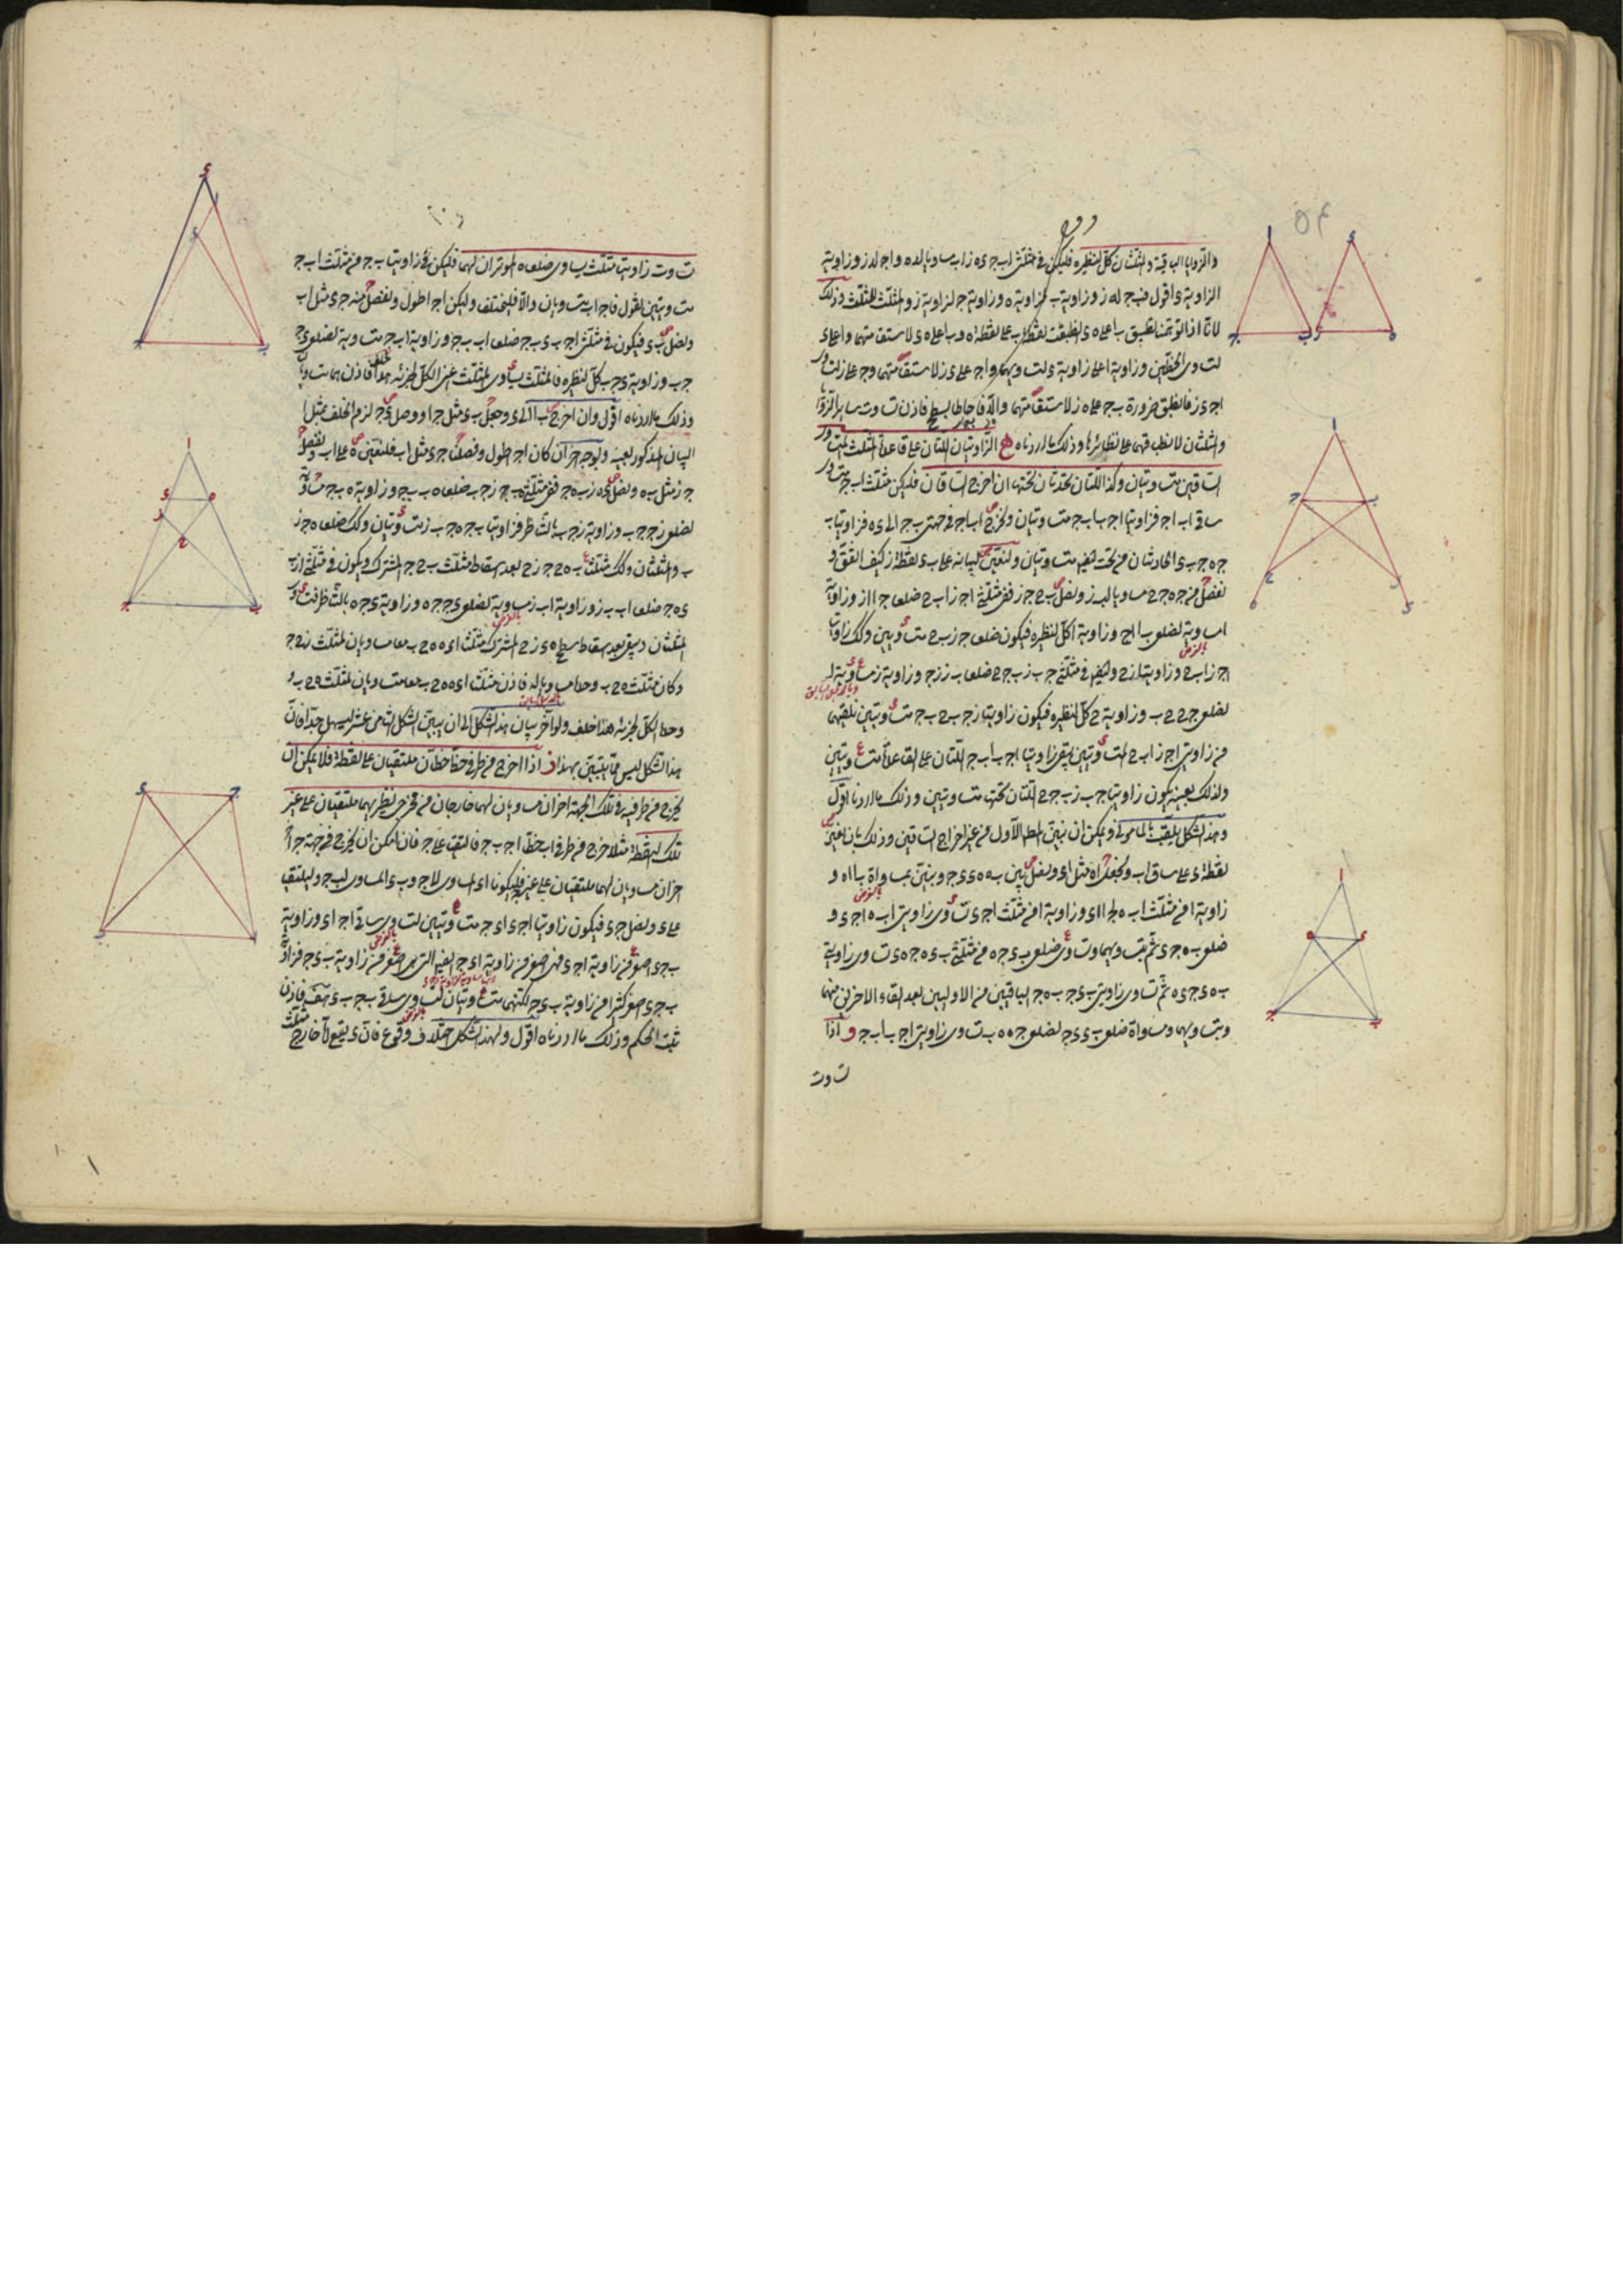 والزوايا الباقية والمثلثان كل لنظيره فليكن في مثلثي ا ب ج د ه ز ا ب مساويا لده و ا ج لدز وزاوية
الزاوية د اقول فب ج له ز وزاوية ب لزاوية ه وزاوية ج لزاوية ز والمثلث للمثلث وذلك
لانا اذا توهمنا تطبيق ب ا على ه د انطبقت نقطة ب على نقطة ه و ب ا على ه د لاستقامتهما و ا على د
لتساوي الخطين وزاوية ا على زاوية د لتساويهما و ا ج على د ز لاستقامتهما و ج على ز
ا ج د ز فانطبق ضرورة ب ج على ه ز لاستقامتهما والا فاحاطا بسطح فاذن تساوت ساير الزوايا
والمثلثان لانطباقهما على نظائرها وذلك ما اردناه ه الزاويتان اللتان على قاعدة المثلث المتساوي
الساقين متساويتان وكذا اللتان تحدثان تحتها ان اخرج الساقان فليكن مثلث ا ب ج متساوي
ساقي ا ب ا ج فزاويتا ا ج ب ا ب ج متساويتان ولنخرج ا ب ا ج في جهتي ب ج الى د ه فزاويتا ب
ج ه ج ب د الحادثتان من تحت ايضا متساويتان ولنعين لبيانه على ب د نقطة ز كيف اتفق و
نفصل من ج ه ج ح مساويا لب ز ونصل ب ح ج ز ففي مثلثي ا ج ز ا ب ح ضلعا ج ا ا ز وزاوية
ا مساوية لضلعي ب ا ا ح وزاوية ا كل لنظيره فيكون ضلعا ج ز ب ح متساويين وكذلك زاويتا
ا ج ز ا ب ح وزاويتا ز ح وايضا في مثلثي ج ب ز ب ج ح ضلعا ب ز ز ج وزاوية ز مساوية
لضلعي ج ح ح ب وزاوية ح كل لنظيره فيكون زاويتا ز ج ب ح ب ج متساويتين نلقيهما
من زاويتي ا ج ز ا ب ح المتساويتين يبقى زاويتا ا ج ب ا ب ج اللتان على القاعدة متساويتين
ولذلك بعينه يكون زاويتا ج ب ز ب ج ح اللتان تحتها متساويتين وذلك ما اردنا اقول
وهذا الشكل يلقب بالمأموني ويمكن ان نبين المطلوب الاول من غير اخراج الساقين وذلك بان نعين
نقطة د على ساق ا ب ونجعل ا ه مثل ا د ونصل ب ه ه د د ج ونبين بمساواة ب ا ا ه و
زاوية ا من مثلث ا ب ه لج ا ا د وزاوية ا من مثلث ا ج د تساوي زاويتي ا ب ه ا ج د و
ضلعي ب ه ج د ثم بتساويهما وتساوي ضلعي ب د ج ه من مثلثي ب د ه ج ه د تساوي زاويتي
ب ه د ج د ه ثم تساوي زاويتي ب د ج ب ه ج الباقيتين من الاوليين بعد القاء الاخريين منهما
وبتساويهما ومساواة ضلعي ب د د ج لضلعي ج ه ه ب تساوي زاويتي ا ج ب ا ب ج و اذا
تساوت
تساوت زاويتا مثلث يساوي ضلعاه الموتران لهما فليكن في زاويتا ب ج من مثلث ا ب ج
متساويتين نقول فا ج ا ب متساويان والا فليختلف وليكن ا ج اطول ونفصل منه ج د مثل ا ب
ونصل ب د فيكون في مثلثي ا ج ب د ب ج ضلعا ا ب ب ج وزاوية ا ب ج متساوية لضلعي د ج
ج ب وزاوية د ج ب كل لنظيره فالمثلث يساوي المثلث اعني الكل لجزئه هذا خلف فاذن هما متساويان
وذلك ما اردناه اقول وان اخرج ب ا الى د وجعل ب د مثل ج ا ووصل د ج لزم الخلف بمثل
البيان المذكور بعينه وبوجه اخر ان كان ا ج اطول وفصلنا ج د مثل ا ب فلنعين ه على ا ب ونفصل
ج ز مثل ب ه ونصل ه ج ز ب ه ج ففي مثلثي ه ب ج ز ج ب ضلعا ه ب ب ج وزاوية ه ب ج متساوية
لضلعي ز ج ج ب وزاوية ز ج ب بالتناظر فزاويتا ب ج ه ج ب ز متساويتان وكذلك ضلعا ه ج ز
ب والمثلثان وكذلك مثلثا ب ه ح ج ز ح بعد اسقاط مثلث ب ح ج المشترك ويكون في مثلثي ا ز ب
د ه ج ضلعا ا ب ب ز وزاوية ا ب ز مساوية لضلعي د ج ج ه وزاوية د ج ه بالتناظر فتساوى
المثلثان ويبقى بعد اسقاط سطح ه د ز ح المشترك مثلثا ا د ه ه ح ب معا مساويان لمثلث ز ح ج
وكان مثلث ه ح ب وحده مساويا له فاذن مثلثا ا د ه ه ح ب معا متساويان لمثلث ه ح ب و
وحده الكل لجزئه هذا خلف ولو اخر بيان هذا الشكل الى ان يبين الشكل الثامن عشر لسهل جدا فان
هذا الشكل ليس مما يتبين بهذا ز اذا اخرج من طرفي خط خطان ملتقيان على نقطة فلا يمكن ان
يخرج من طرفيه في تلك الجهة اخران مساويان لهما خارجان من مخرج نظيريهما ملتقيان على غير
تلك النقطة مثلا خرج من طرفي ا ب خطا ا ج ب ج فالتقيا على ج فان امكن ان يخرج في جهة ج ا
خران مساويان لهما ملتقيان على غير ج فليكونا ا د المساوي لا ج و ب د المساوي لب ج وليلتقيا
على د ونصل ج د فيكون زاويتا ا ج د ا د ج متساويتين لتساوي ساقي ا ج ا د وزاوية
ب ج د اصغر من زاوية ا ج د فهي اصغر من زاوية ا د ج ايضا التي هي اصغر من زاوية ب د ج فزاوية
ب ج د اصغر كثيرا من زاوية ب د ج لكنهما متساويتان لتساوي ساقي ب ج ب د هف فاذن
ثبت الحكم وذلك ما اردناه اقول ولهذا الشكل اختلاف وقوع فان د يقع اما خارج مثلث